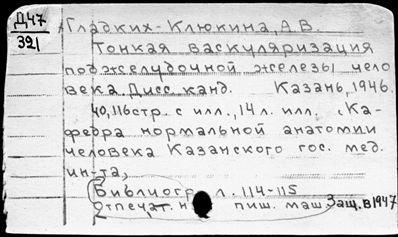 Д47
321
Гладких-Клюкина, А.В.
Тонкая васкуляризация
поджелудочной железы чело
века. Дисс. канд. Казань, 1946.
40,116 стр. с илл., 14 л. илл. (Ка-
федра нормальной анатомии
человека Казанского гос. мед.
ин-та)
Библиогр. л. 114-115
Отпечат. н пиш. маш. Защ. в 1947